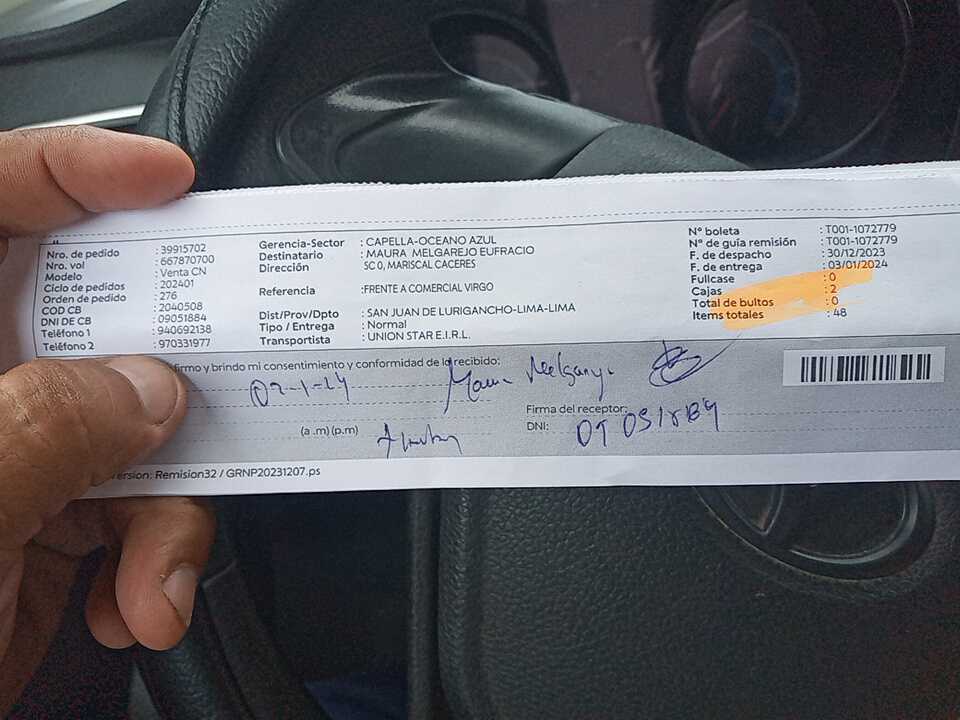 Nro. de pedido : 39915702
Nro. vol : 667870700
Modelo : Venta CN
Ciclo de pedidos : 202401
Orden de pedido : 276
COD CB : 2040508
DNI DE CB : 09051884
Teléfono 1 : 940692138
Teléfono 2 : 970331977
Gerencia-Sector : CAPELLA-OCEANO AZUL
Destinatario : MAURA MELGAREJO EUFRACIO
Dirección SC 0, MARISCAL CACERES
Referencia :FRENTE A COMERCIAL VIRGO
Dist/Prov/Dpto : SAN JUAN DE LURIGANCHO-LIMA-LIMA
Tipo / Entrega : Normal
Transportista : UNION STAR E.I.R.L.
N° boleta : T001-1072779
N° de guía remisión : T001-1072779
F. de despacho : 30/12/2023
F. de entrega : 03/01/2024
Fullcase : 0
Cajas : 2
Total de bultos : 0
Items totales : 48
firmo y brindo mi consentimiento y conformidad de lo recibido:
Maura
Firma del receptor:
(a .m) (p.m)
DNI:
version: Remision32 / GRNP20231207.ps